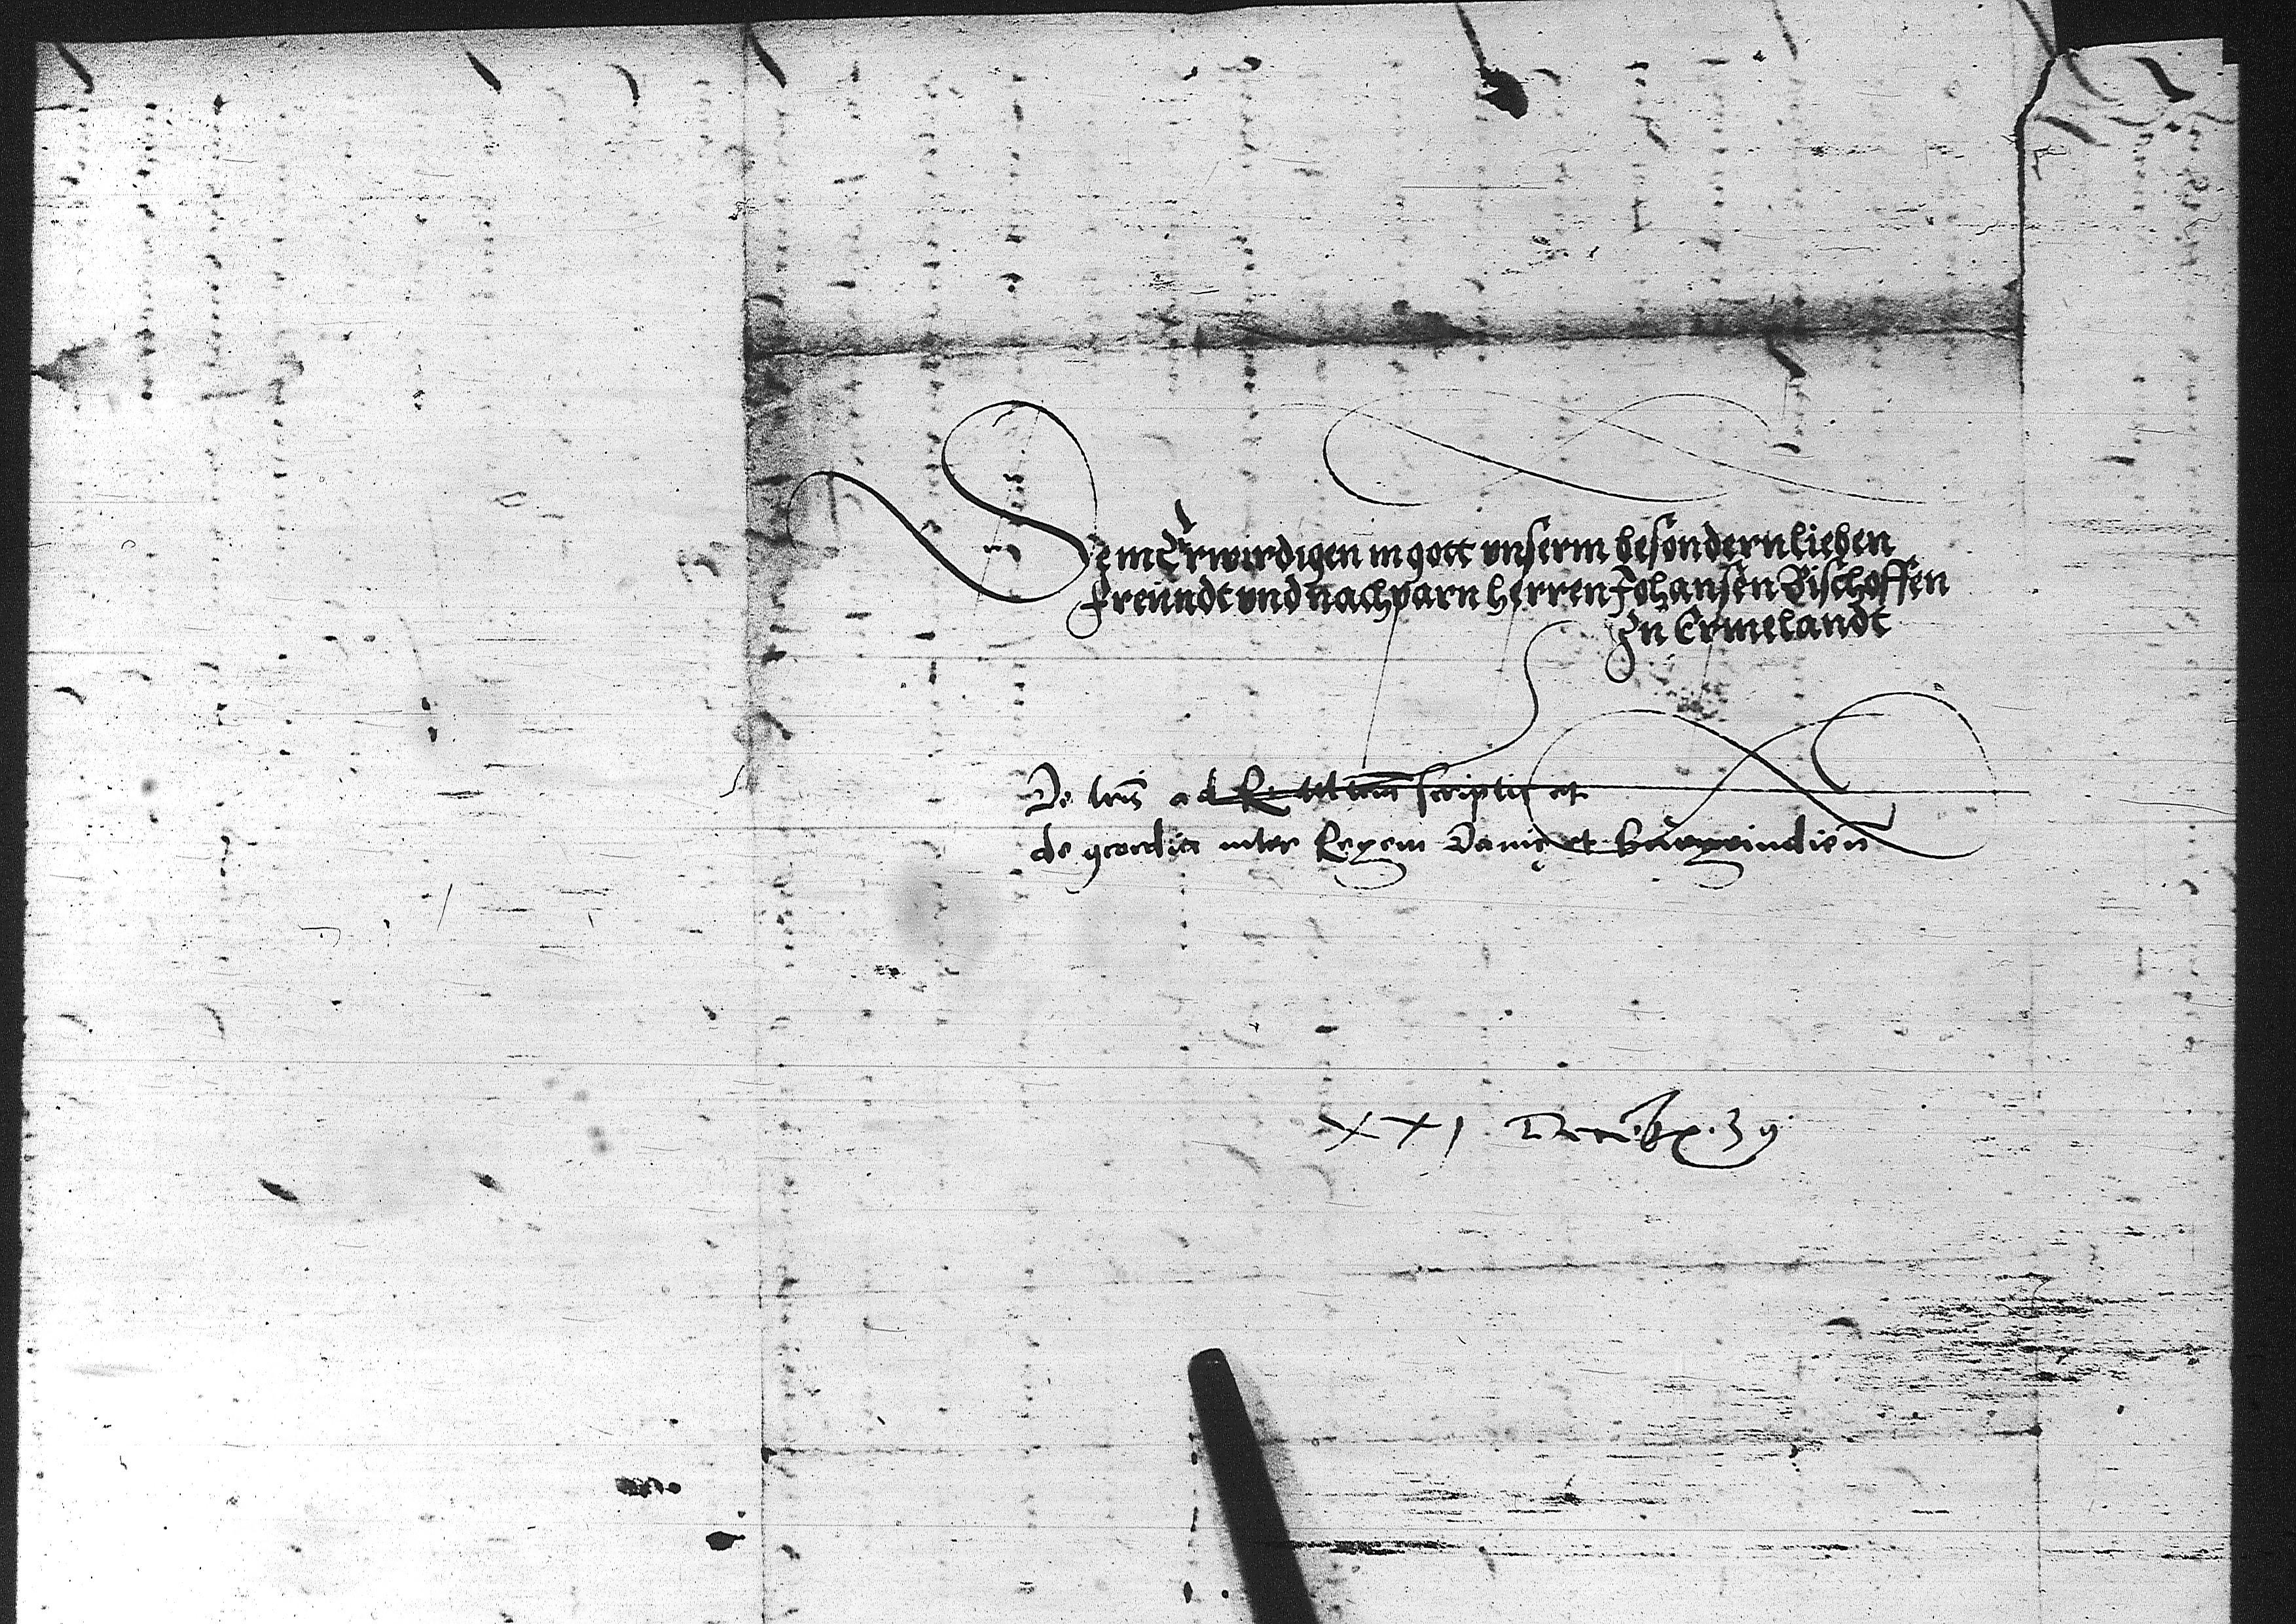 Dem Erwirdigen in gott vnserm besondern lieben
freundt vnd nachparn herren Johansen Bischoffen
Zu Ermelandt
De lr̃is ad scriptis et
de 9cordia inter Regem Danię et Burgundieñ
XXI Decẽbr. 39